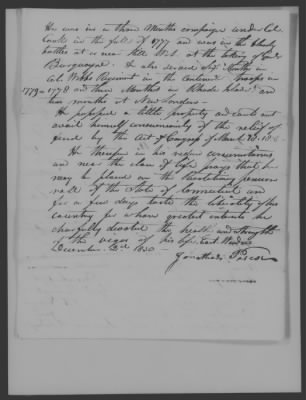 He was in a three Months campaign under Col.
Cook in the fall of 1777 and was in the bloody
battles at or near Still Wat. at the taking of Genl.
Burgoyne. He also served six Months in
Col. Webbs Regiment in the Continental Troops in
1778 and three Months in Rhode Island and
two months at New London
He possessed a little property and could not
avail himself conveniently of the relief of
fered by the Act of Congress of March, 1818
He therefore in his reduced circumstances
and near the close of life prays that he
may be placed on the Revolutionary pension
roll of the State of Connecticut and
for a few days taste the liberality of his
Country for whose greatest interests he
cheerfully devoted the health and strength
of the vigor of his life. East Windsor
December 1830
Jonathan Pascoe